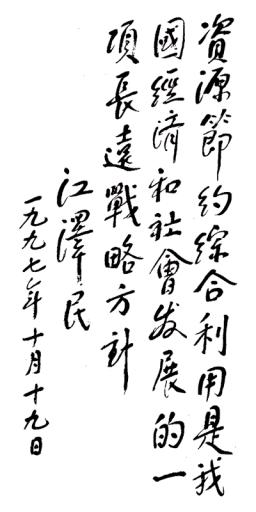 資源節约综合利用是我
國經濟和社會发展的一
項長遠戰略方針
江澤民
一九九七年十月十九日